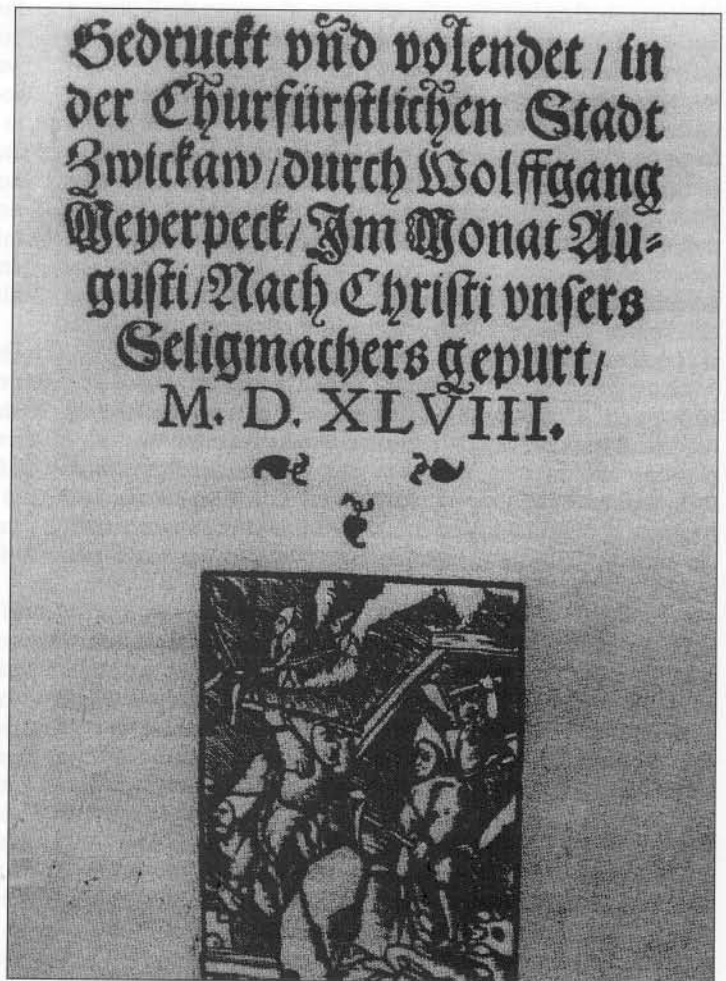 Gedruckt vñd volendet / in
der Churfürstlichen Stadt
Zwickaw / durch Wolffgang
Meyerpeck / Im Monat Au⸗
gusti / Nach Christi vnsers
Seligmachers gepurt /
M. D. XLVIII.